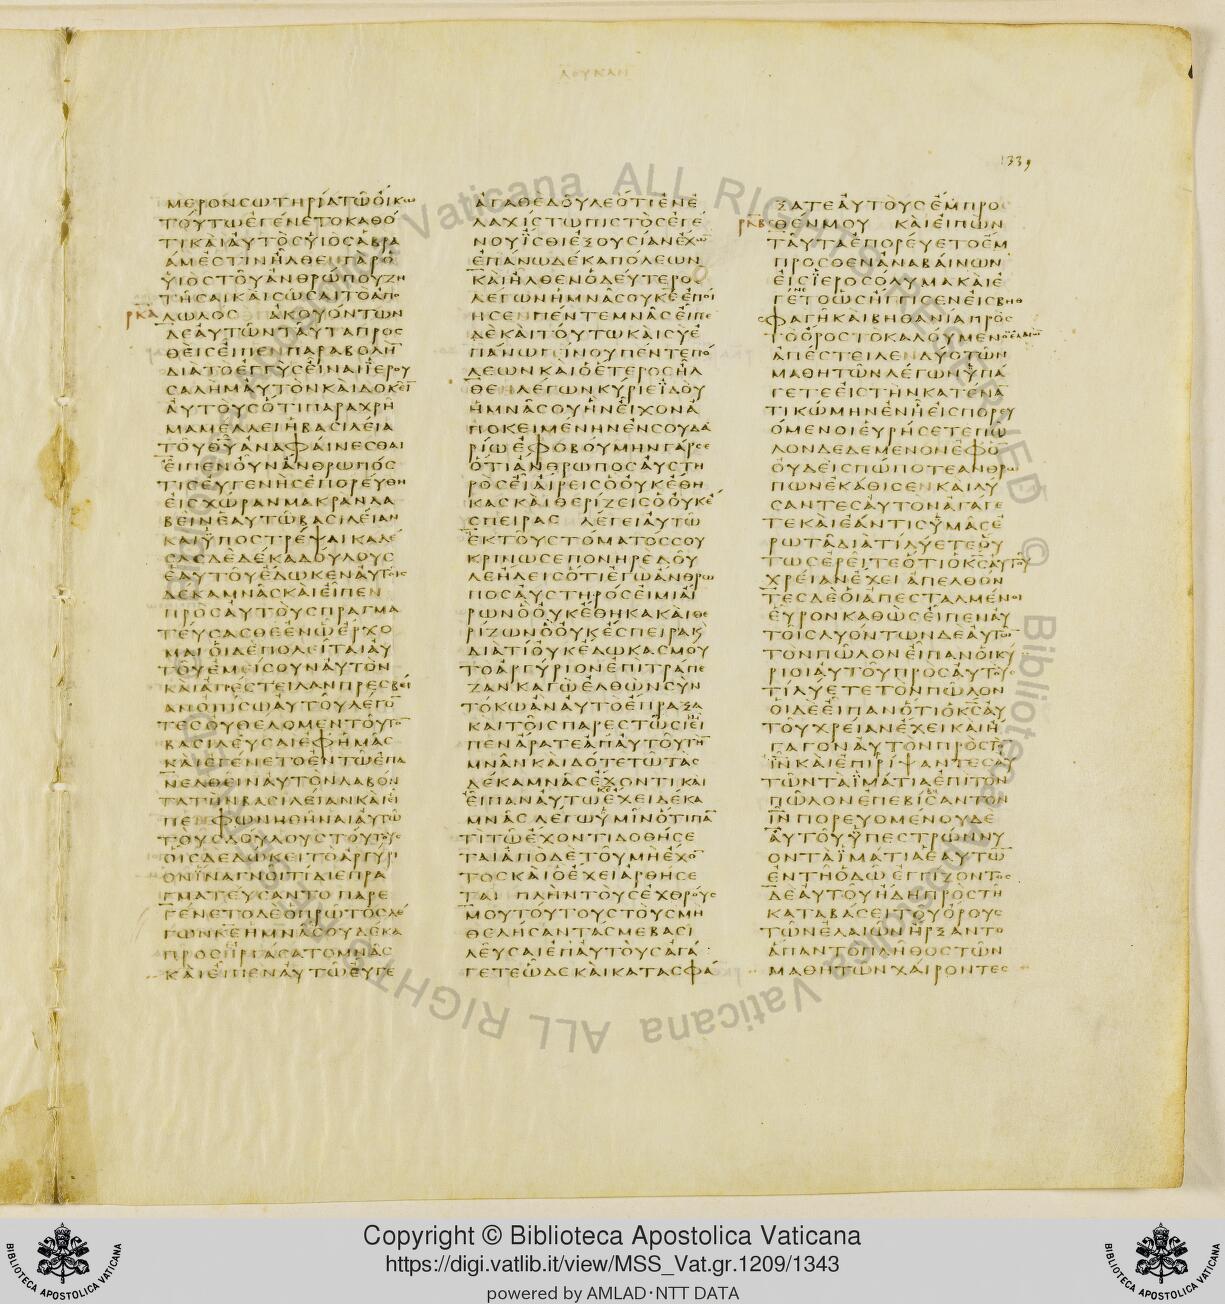 ΛΟΥΚΑΝ
1339
ΜΕΡΟΝ ΣΩΤΗΡΙΑ ΤΩ ΟΙΚΩ
ΤΟΥΤΩ ΕΓΕΝΕΤΟ ΚΑΘΟ
ΤΙ ΚΑΙ ΑΥΤΟΣ ΥΙΟΣ ΑΒΡΑ
ΑΜ ΕΣΤΙΝ ΗΛΘΕΝ ΓΑΡ Ο
ΥΙΟΣ ΤΟΥ ΑΝΘΡΩΠΟΥ ΖΗ
ΤΗΣΑΙ ΚΑΙ ΣΩΣΑΙ ΤΟ ΑΠΟ
ΡΚΑ ΛΩΛΟΣ ΑΚΟΥΟΝΤΩΝ
ΔΕ ΑΥΤΩΝ ΤΑΥΤΑ ΠΡΟΣ
ΘΕΙΣ ΕΙΠΕΝ ΠΑΡΑΒΟΛΗ̅
ΔΙΑ ΤΟ ΕΓΓΥΣ ΕΙΝΑΙ ΙΕΡΟΥ
ΣΑΛΗΜ ΑΥΤΟΝ ΚΑΙ ΔΟΚΕΙ̅
ΑΥΤΟΥΣ ΟΤΙ ΠΑΡΑΧΡΗ
ΜΑ ΜΕΛΛΕΙ Η ΒΑΣΙΛΕΙΑ
ΤΟΥ Θ̅Υ̅ ΑΝΑΦΑΙΝΕΣΘΑΙ
ΕΙΠΕΝ ΟΥΝ ΑΝΘΡΩΠΟΣ
ΤΙΣ ΕΥΓΕΝΗΣ ΕΠΟΡΕΥΘΗ
ΕΙΣ ΧΩΡΑΝ ΜΑΚΡΑΝ ΛΑ
ΒΕΙΝ ΕΑΥΤΩ ΒΑΣΙΛΕΙΑΝ
ΚΑΙ ΥΠΟΣΤΡΕΨΑΙ ΚΑΛΕ
ΣΑΣ ΔΕ ΔΕΚΑ ΔΟΥΛΟΥΣ
ΕΑΥΤΟΥ ΕΔΩΚΕΝ ΑΥΤΟΙΣ
ΔΕΚΑ ΜΝΑΣ ΚΑΙ ΕΙΠΕΝ
ΠΡΟΣ ΑΥΤΟΥΣ ΠΡΑΓΜΑ
ΤΕΥΣΑΣΘΕ ΕΝ Ω ΕΡΧΟ
ΜΑΙ ΟΙ ΔΕ ΠΟΛΕΙΤΑΙ ΑΥ
ΤΟΥ ΕΜΕΙΣΟΥΝ ΑΥΤΟΝ
ΚΑΙ ΑΠΕΣΤΕΙΛΑΝ ΠΡΕΣΒΕΙ
ΑΝ ΟΠΙΣΩ ΑΥΤΟΥ ΛΕΓΟ̅
ΤΕΣ ΟΥ ΘΕΛΟΜΕΝ ΤΟΥΤΟ̅
ΒΑΣΙΛΕΥΣΑΙ ΕΦ ΗΜΑΣ
ΚΑΙ ΕΓΕΝΕΤΟ ΕΝ ΤΩ ΕΠΑ
ΝΕΛΘΕΙΝ ΑΥΤΟΝ ΛΑΒΟΝ
ΤΑ ΤΗΝ ΒΑΣΙΛΕΙΑΝ ΚΑΙ ΕΙ
ΠΕΝ ΦΩΝΗΘΗΝΑΙ ΑΥΤΩ
ΤΟΥΣ ΔΟΥΛΟΥΣ ΤΟΥΤΟΥΣ
ΟΙΣ ΔΕΔΩΚΕΙ ΤΟ ΑΡΓΥΡΙ
ΟΝ ΙΝΑ ΓΝΟΙ ΤΙ ΔΙΕΠΡΑ
ΓΜΑΤΕΥΣΑΝΤΟ ΠΑΡΕ
ΓΕΝΕΤΟ ΔΕ Ο ΠΡΩΤΟΣ ΛΕ
ΓΩΝ ΚΕ Η ΜΝΑ ΣΟΥ ΔΕΚΑ
ΠΡΟΣΗΡΓΑΣΑΤΟ ΜΝΑΣ
ΚΑΙ ΕΙΠΕΝ ΑΥΤΩ ΕΥΓΕ
ΑΓΑΘΕ ΔΟΥΛΕ ΟΤΙ ΕΝ Ε
ΛΑΧΙΣΤΩ ΠΙΣΤΟΣ ΕΓΕ
ΝΟΥ ΙΣΘΙ ΕΞΟΥΣΙΑΝ ΕΧΩ̅
ΕΠΑΝΩ ΔΕΚΑ ΠΟΛΕΩΝ
ΚΑΙ ΗΛΘΕΝ Ο ΔΕΥΤΕΡΟΣ
ΛΕΓΩΝ Η ΜΝΑ ΣΟΥ ΚΕ ΕΠΟΙ
ΗΣΕΝ ΠΕΝΤΕ ΜΝΑΣ ΕΙΠΕ
ΔΕ ΚΑΙ ΤΟΥΤΩ ΚΑΙ ΣΥ Ε
ΠΑΝΩ ΓΕΙΝΟΥ ΠΕΝΤΕ ΠΟ
ΛΕΩΝ ΚΑΙ Ο ΕΤΕΡΟΣ ΗΛ
ΘΕΝ ΛΕΓΩΝ ΚΥΡΙΕ ΙΔΟΥ
Η ΜΝΑ ΣΟΥ ΗΝ ΕΙΧΟΝ Α
ΠΟΚΕΙΜΕΝΗΝ ΕΝ ΣΟΥΔΑ
ΡΙΩ ΕΦΟΒΟΥΜΗΝ ΓΑΡ ΣΕ
ΟΤΙ ΑΝΘΡΩΠΟΣ ΑΥΣΤΗ
ΡΟΣ ΕΙ ΑΙΡΕΙΣ Ο ΟΥΚ ΕΘΗ
ΚΑΣ ΚΑΙ ΘΕΡΙΖΕΙΣ Ο ΟΥΚ Ε
ΣΠΕΙΡΑΣ ΛΕΓΕΙ ΑΥΤΩ
ΕΚ ΤΟΥ ΣΤΟΜΑΤΟΣ ΣΟΥ
ΚΡΙΝΩ ΣΕ ΠΟΝΗΡΕ ΔΟΥ
ΛΕ ΗΔΕΙΣ ΟΤΙ ΕΓΩ ΑΝΘΡΩ
ΠΟΣ ΑΥΣΤΗΡΟΣ ΕΙΜΙ ΑΙ
ΡΩΝ Ο ΟΥΚ ΕΘΗΚΑ ΚΑΙ ΘΕ
ΡΙΖΩΝ Ο ΟΥΚ ΕΣΠΕΙΡΑ Κ
ΔΙΑ ΤΙ ΟΥΚ ΕΔΩΚΑΣ ΜΟΥ
ΤΟ ΑΡΓΥΡΙΟΝ ΕΠΙ ΤΡΑΠΕ
ΖΑΝ ΚΑΓΩ ΕΛΘΩΝ ΣΥΝ
ΤΟΚΩ ΑΝ ΑΥΤΟ ΕΠΡΑΞΑ
ΚΑΙ ΤΟΙΣ ΠΑΡΕΣΤΩΣΙΝ ΕΙ
ΠΕΝ ΑΡΑΤΕ ΑΠ ΑΥΤΟΥ ΤΗ̅
ΜΝΑΝ ΚΑΙ ΔΟΤΕ ΤΩ ΤΑΣ
ΔΕΚΑ ΜΝΑΣ ΕΧΟΝΤΙ ΚΑΙ
ΕΙΠΑΝ ΑΥΤΩ ΚΕ ΕΧΕΙ ΔΕΚΑ
ΜΝΑΣ ΛΕΓΩ ΥΜΙΝ ΟΤΙ ΠΑ̅
ΤΙ ΤΩ ΕΧΟΝΤΙ ΔΟΘΗΣΕ
ΤΑΙ ΑΠΟ ΔΕ ΤΟΥ ΜΗ ΕΧΟ̅
ΤΟΣ ΚΑΙ Ο ΕΧΕΙ ΑΡΘΗΣΕ
ΤΑΙ ΠΛΗΝ ΤΟΥΣ ΕΧΘΡΟΥΣ
ΜΟΥ ΤΟΥΤΟΥΣ ΤΟΥΣ ΜΗ
ΘΕΛΗΣΑΝΤΑΣ ΜΕ ΒΑΣΙ
ΛΕΥΣΑΙ ΕΠ ΑΥΤΟΥΣ ΑΓΑ
ΓΕΤΕ ΩΔΕ ΚΑΙ ΚΑΤΑΣΦΑ
ΞΑΤΕ ΑΥΤΟΥΣ ΕΜΠΡΟ
ΡΚΒ ΣΘΕΝ ΜΟΥ ΚΑΙ ΕΙΠΩΝ
ΤΑΥΤΑ ΕΠΟΡΕΥΕΤΟ ΕΜ
ΠΡΟΣΘΕΝ ΑΝΑΒΑΙΝΩΝ
ΕΙΣ ΙΕΡΟΣΟΛΥΜΑ ΚΑΙ Ε
ΓΕΝΕΤΟ ΩΣ ΗΓΓΙΣΕΝ ΕΙΣ ΒΗΘ
ΣΦΑΓΗ ΚΑΙ ΒΗΘΑΝΙΑ ΠΡΟΣ
ΤΟ ΟΡΟΣ ΤΟ ΚΑΛΟΥΜΕΝΟΝ ΕΛΑΙΩΝ
ΑΠΕΣΤΕΙΛΕΝ ΔΥΟ ΤΩΝ
ΜΑΘΗΤΩΝ ΛΕΓΩΝ ΥΠΑ
ΓΕΤΕ ΕΙΣ ΤΗΝ ΚΑΤΕΝΑ̅
ΤΙ ΚΩΜΗΝ ΕΝ Η ΕΙΣΠΟΡΕΥ
ΟΜΕΝΟΙ ΕΥΡΗΣΕΤΕ ΠΩ
ΛΟΝ ΔΕΔΕΜΕΝΟΝ ΕΦ Ο̅
ΟΥΔΕΙΣ ΠΩΠΟΤΕ ΑΝΘΡΩ
ΠΩΝ ΕΚΑΘΙΣΕΝ ΚΑΙ ΛΥ
ΣΑΝΤΕΣ ΑΥΤΟΝ ΑΓΑΓΕ
ΤΕ ΚΑΙ ΕΑΝ ΤΙΣ ΥΜΑΣ Ε
ΡΩΤΑ ΔΙΑ ΤΙ ΛΥΕΤΕ ΟΥ
ΤΩΣ ΕΡΕΙΤΕ ΟΤΙ Ο Κ̅Σ̅ ΑΥΤΟΥ
ΧΡΕΙΑΝ ΕΧΕΙ ΑΠΕΛΘΟΝ
ΤΕΣ ΔΕ ΟΙ ΑΠΕΣΤΑΛΜΕΝΟΙ
ΕΥΡΟΝ ΚΑΘΩΣ ΕΙΠΕΝ ΑΥ
ΤΟΙΣ ΛΥΟΝΤΩΝ ΔΕ ΑΥΤΩ̅
ΤΟΝ ΠΩΛΟΝ ΕΙΠΑΝ ΟΙ ΚΥ
ΡΙΟΙ ΑΥΤΟΥ ΠΡΟΣ ΑΥΤΟΥΣ
ΤΙ ΛΥΕΤΕ ΤΟΝ ΠΩΛΟΝ
ΟΙ ΔΕ ΕΙΠΑΝ ΟΤΙ Ο Κ̅Σ̅ ΑΥ
ΤΟΥ ΧΡΕΙΑΝ ΕΧΕΙ ΚΑΙ Η
ΓΑΓΟΝ ΑΥΤΟΝ ΠΡΟΣ ΤΟ̅
Ι̅Ν̅ ΚΑΙ ΕΠΙΡΙΨΑΝΤΕΣ ΑΥ
ΤΩΝ ΤΑ ΙΜΑΤΙΑ ΕΠΙ ΤΟΝ
ΠΩΛΟΝ ΕΠΕΒΙΒΑΣΑΝ ΤΟΝ
Ι̅Ν̅ ΠΟΡΕΥΟΜΕΝΟΥ ΔΕ
ΑΥΤΟΥ ΥΠΕΣΤΡΩΝΝΥ
ΟΝ ΤΑ ΙΜΑΤΙΑ ΕΑΥΤΩ̅
ΕΝ ΤΗ ΟΔΩ ΕΓΓΙΖΟΝΤΟΣ
ΔΕ ΑΥΤΟΥ ΗΔΗ ΠΡΟΣ ΤΗ
ΚΑΤΑΒΑΣΕΙ ΤΟΥ ΟΡΟΥΣ
ΤΩΝ ΕΛΑΙΩΝ ΗΡΞΑΝΤΟ
ΑΠΑΝ ΤΟ ΠΛΗΘΟΣ ΤΩΝ
ΜΑΘΗΤΩΝ ΧΑΙΡΟΝΤΕΣ
Copyright © Biblioteca Apostolica Vaticana
https://digi.vatlib.it/view/MSS_Vat.gr.1209/1343
powered by AMLAD·NTT DATA